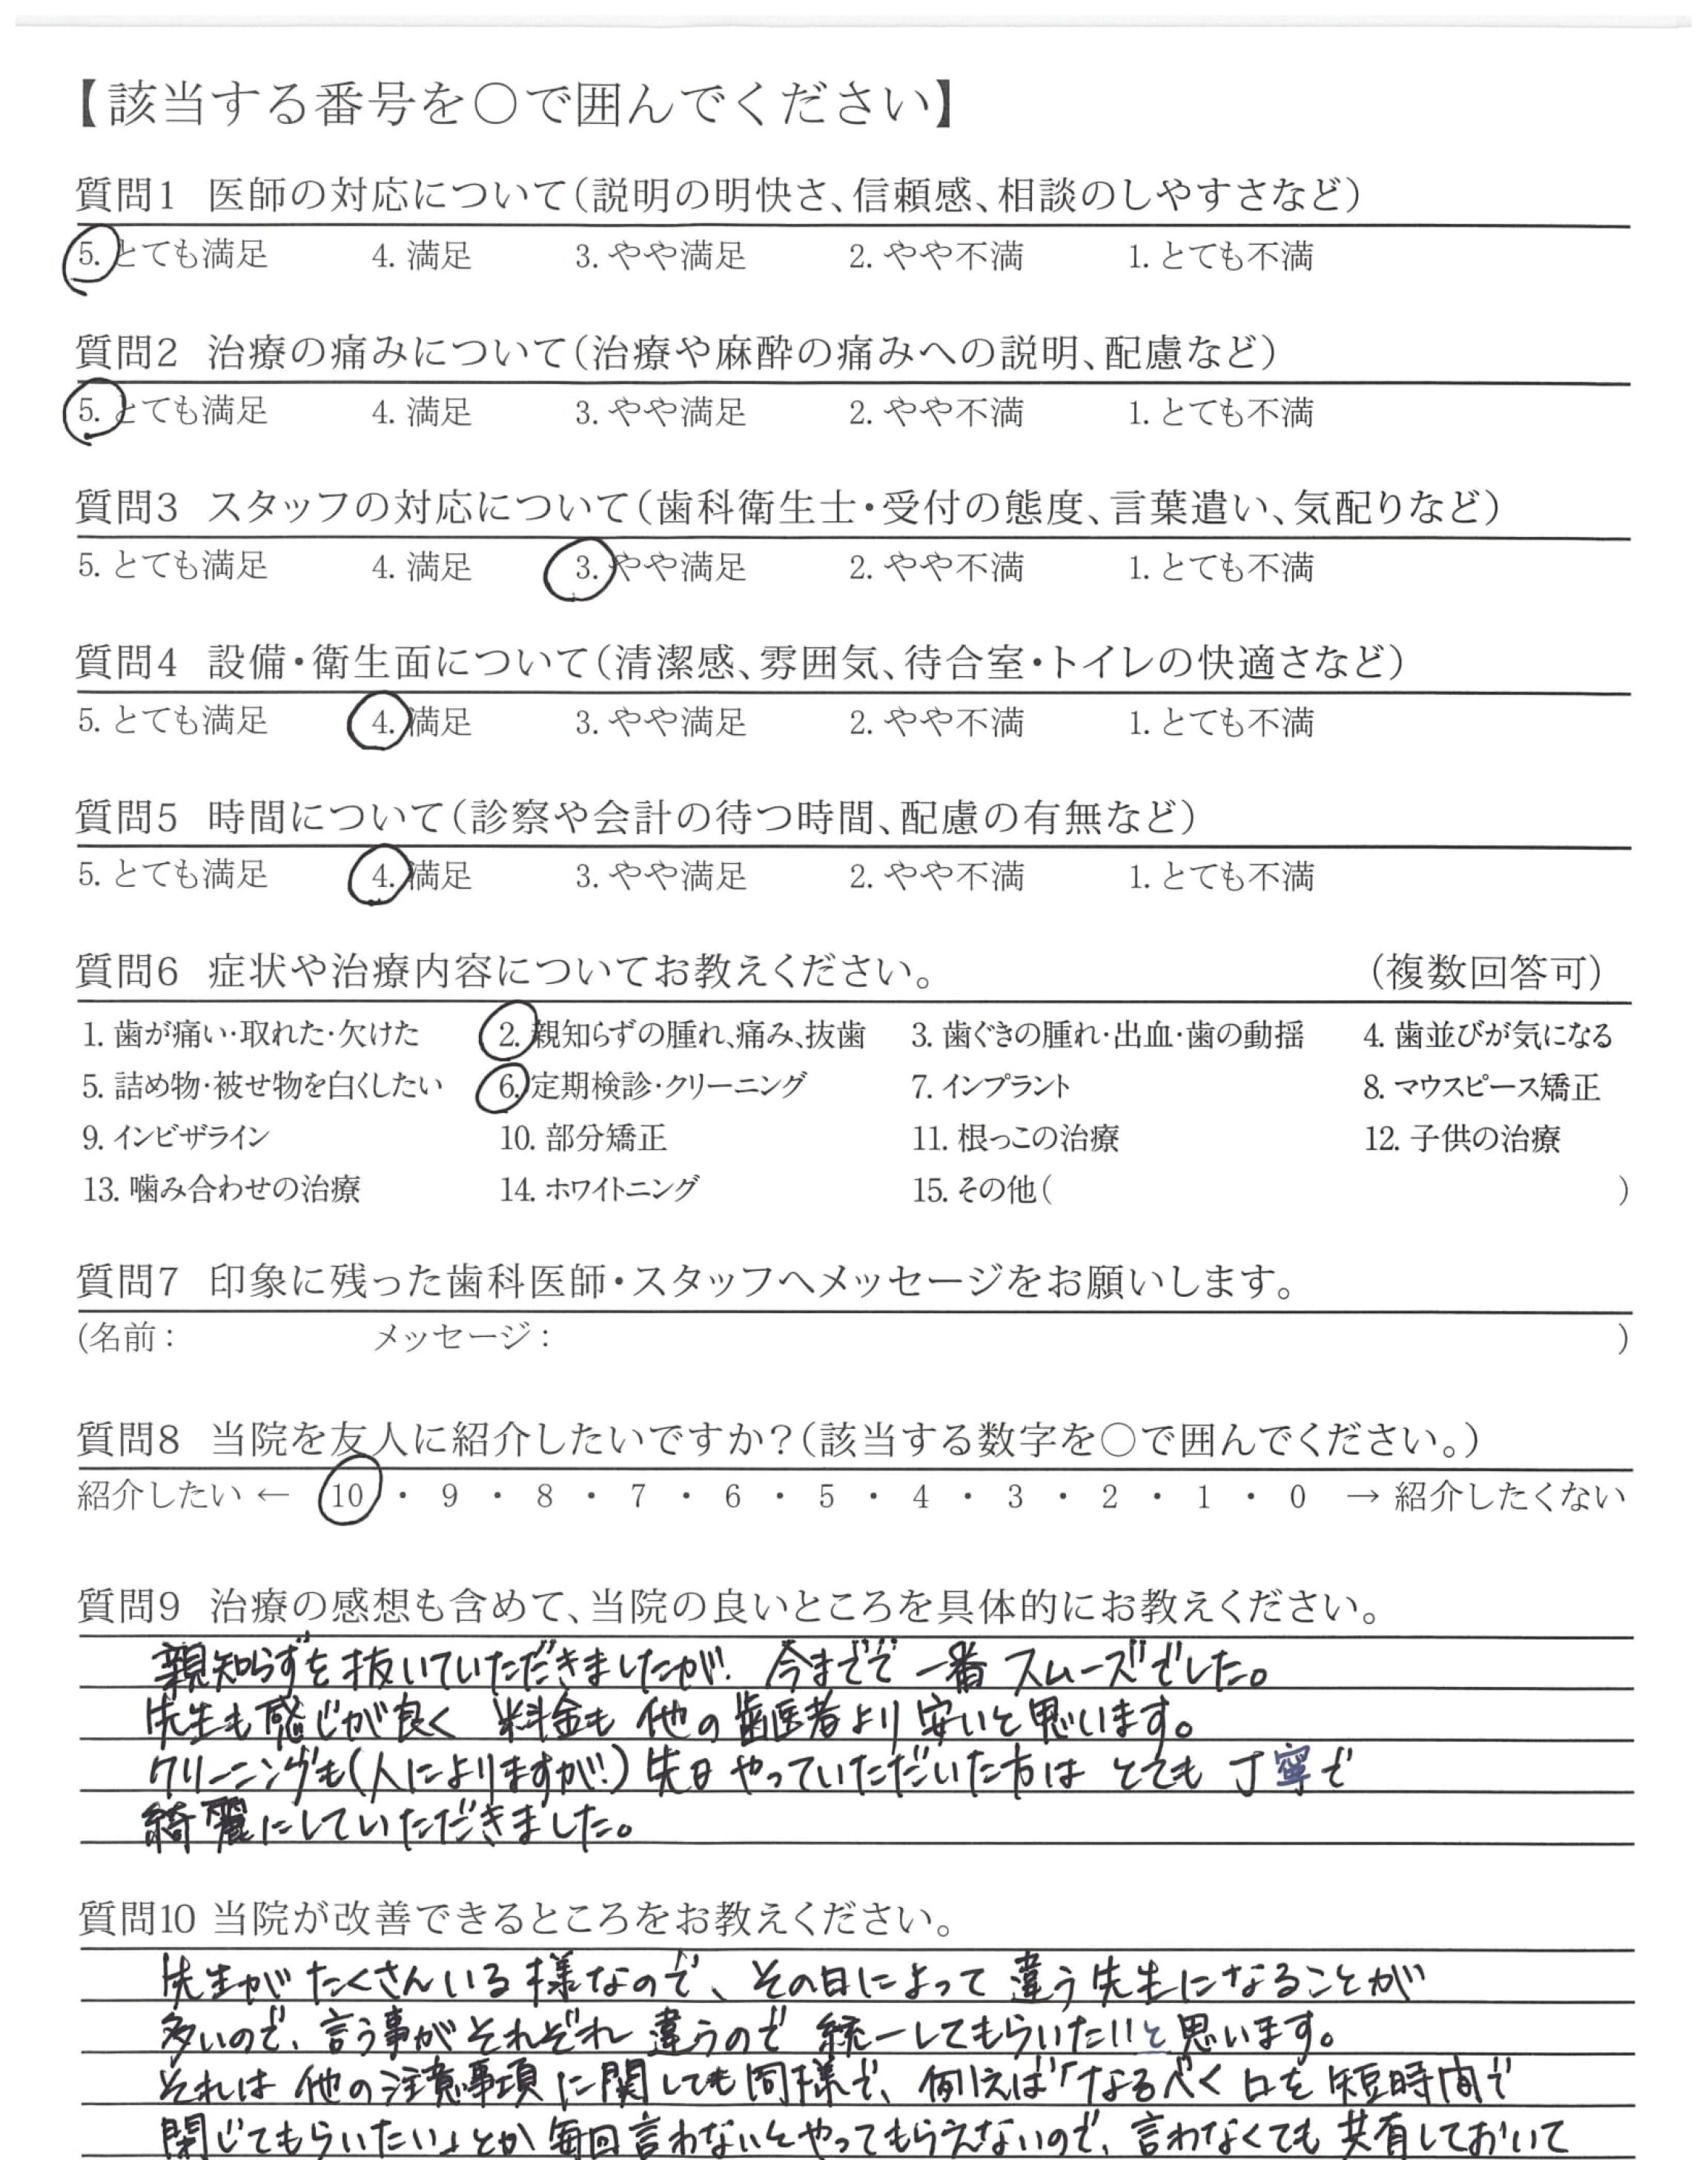 【該当する番号を○で囲んでください】
質問1 医師の対応について(説明の明快さ、信頼感、相談のしやすさなど)
5. とても満足 4. 満足 3. やや満足 2. やや不満 1. とても不満
質問2 治療の痛みについて(治療や麻酔の痛みへの説明、配慮など)
5. とても満足 4. 満足 3. やや満足 2. やや不満 1. とても不満
質問3 スタッフの対応について(歯科衛生士・受付の態度、言葉遣い、気配りなど)
5. とても満足 4. 満足 3. やや満足 2. やや不満 1. とても不満
質問4 設備・衛生面について(清潔感、雰囲気、待合室・トイレの快適さなど)
5. とても満足 4. 満足 3. やや満足 2. やや不満 1. とても不満
質問5 時間について(診察や会計の待つ時間、配慮の有無など)
5. とても満足 4. 満足 3. やや満足 2. やや不満 1. とても不満
質問6 症状や治療内容についてお教えください。 (複数回答可)
1. 歯が痛い・取れた・欠けた 2. 親知らずの腫れ、痛み、抜歯 3. 歯ぐきの腫れ・出血・歯の動揺 4. 歯並びが気になる
5. 詰め物・被せ物を白くしたい 6. 定期検診・クリーニング 7. インプラント 8. マウスピース矯正
9. インビザライン 10. 部分矯正 11. 根っこの治療 12. 子供の治療
13. 噛み合わせの治療 14. ホワイトニング 15. その他( )
質問7 印象に残った歯科医師・スタッフへメッセージをお願いします。
(名前: メッセージ: )
質問8 当院を友人に紹介したいですか?(該当する数字を○で囲んでください。)
紹介したい ← 10 ・ 9 ・ 8 ・ 7 ・ 6 ・ 5 ・ 4 ・ 3 ・ 2 ・ 1 ・ 0 → 紹介したくない
質問9 治療の感想も含めて、当院の良いところを具体的にお教えください。
親知らずを抜いていただきましたが、今までで一番スムーズでした。
先生も感じが良く 料金も他の歯医者より安いと思います。
クリーニングも(人によりますが!)先日やっていただいた方はとても丁寧で
綺麗にしていただきました。
質問10 当院が改善できるところをお教えください。
先生がたくさんいる様なので、その日によって違う先生になることが
多いので、言う事がそれぞれ違うので統一してもらいたいと思います。
それは他の注意事項に関しても同様で、例えば「なるべく口を短時間で
閉じてもらいたい」とか毎回言わないとやってもらえないので、言わなくても共有しておいて